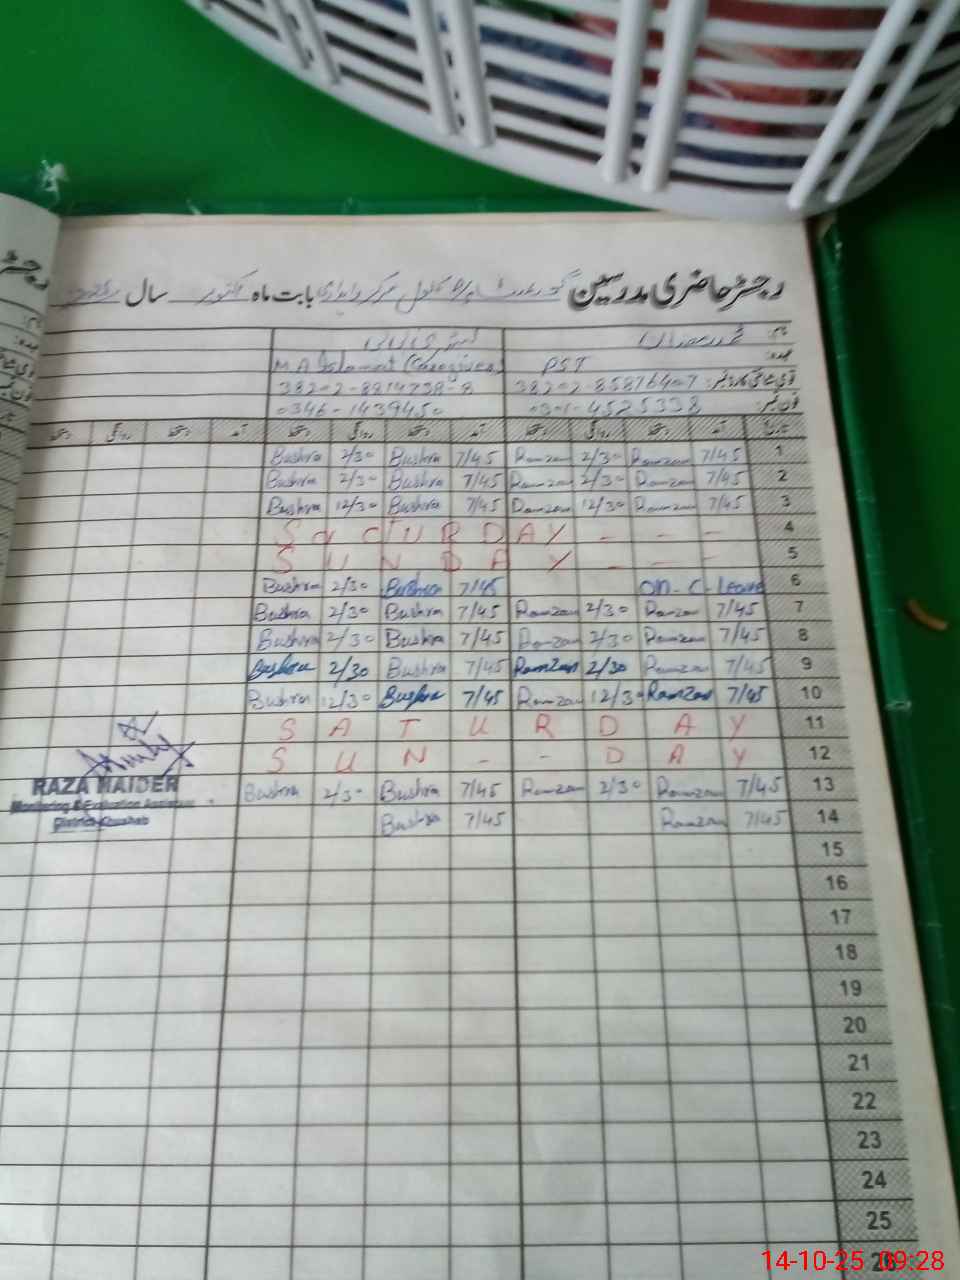 رجسٹر حاضری مدرسین گورنمنٹ پرائمری سکول مرکز بابت ماہ اکتوبر سال
نام: محمد رمضان بشری
عہدہ: PST M.A Islamat (Caregiver)
قومی شناختی کارڈ نمبر: 38202-85876407 38202-8814738-8
فون نمبر: 0301-4525338 0346-1439450
تاریخ آمد دستخط روانگی دستخط آمد دستخط روانگی دستخط آمد دستخط روانگی دستخط
Bushra 2/30 Bushra 7/45 Ramzan 2/30 Ramzan 7/45 1
Bushra 2/30 Bushra 7/45 Ramzan 2/30 Ramzan 7/45 2
Bushra 12/30 Bushra 7/45 Ramzan 12/30 Ramzan 7/45 3
SaTURDAY - - - 4
SUNDAY - - - 5
Bushra 2/30 Bushra 7/45 on C-Leave 6
Bushra 2/30 Bushra 7/45 Ramzan 2/30 Ramzan 7/45 7
Bushra 2/30 Bushra 7/45 Ramzan 2/30 Ramzan 7/45 8
Bushra 2/30 Bushra 7/45 Ramzan 2/30 Ramzan 7/45 9
Bushra 12/30 Bushra 7/45 Ramzan 12/30 Ramzan 7/45 10
SATURDAY 11
SUN - - DAY 12
Bushra 2/30 Bushra 7/45 Ramzan 2/30 Ramzan 7/45 13
Bushra 7/45 Ramzan 7/45 14
RAZA HAIDER
Monitoring & Evaluation Assistant
District Khushab
15
16
17
18
19
20
21
22
23
24
25
26
14-10-25 09:28